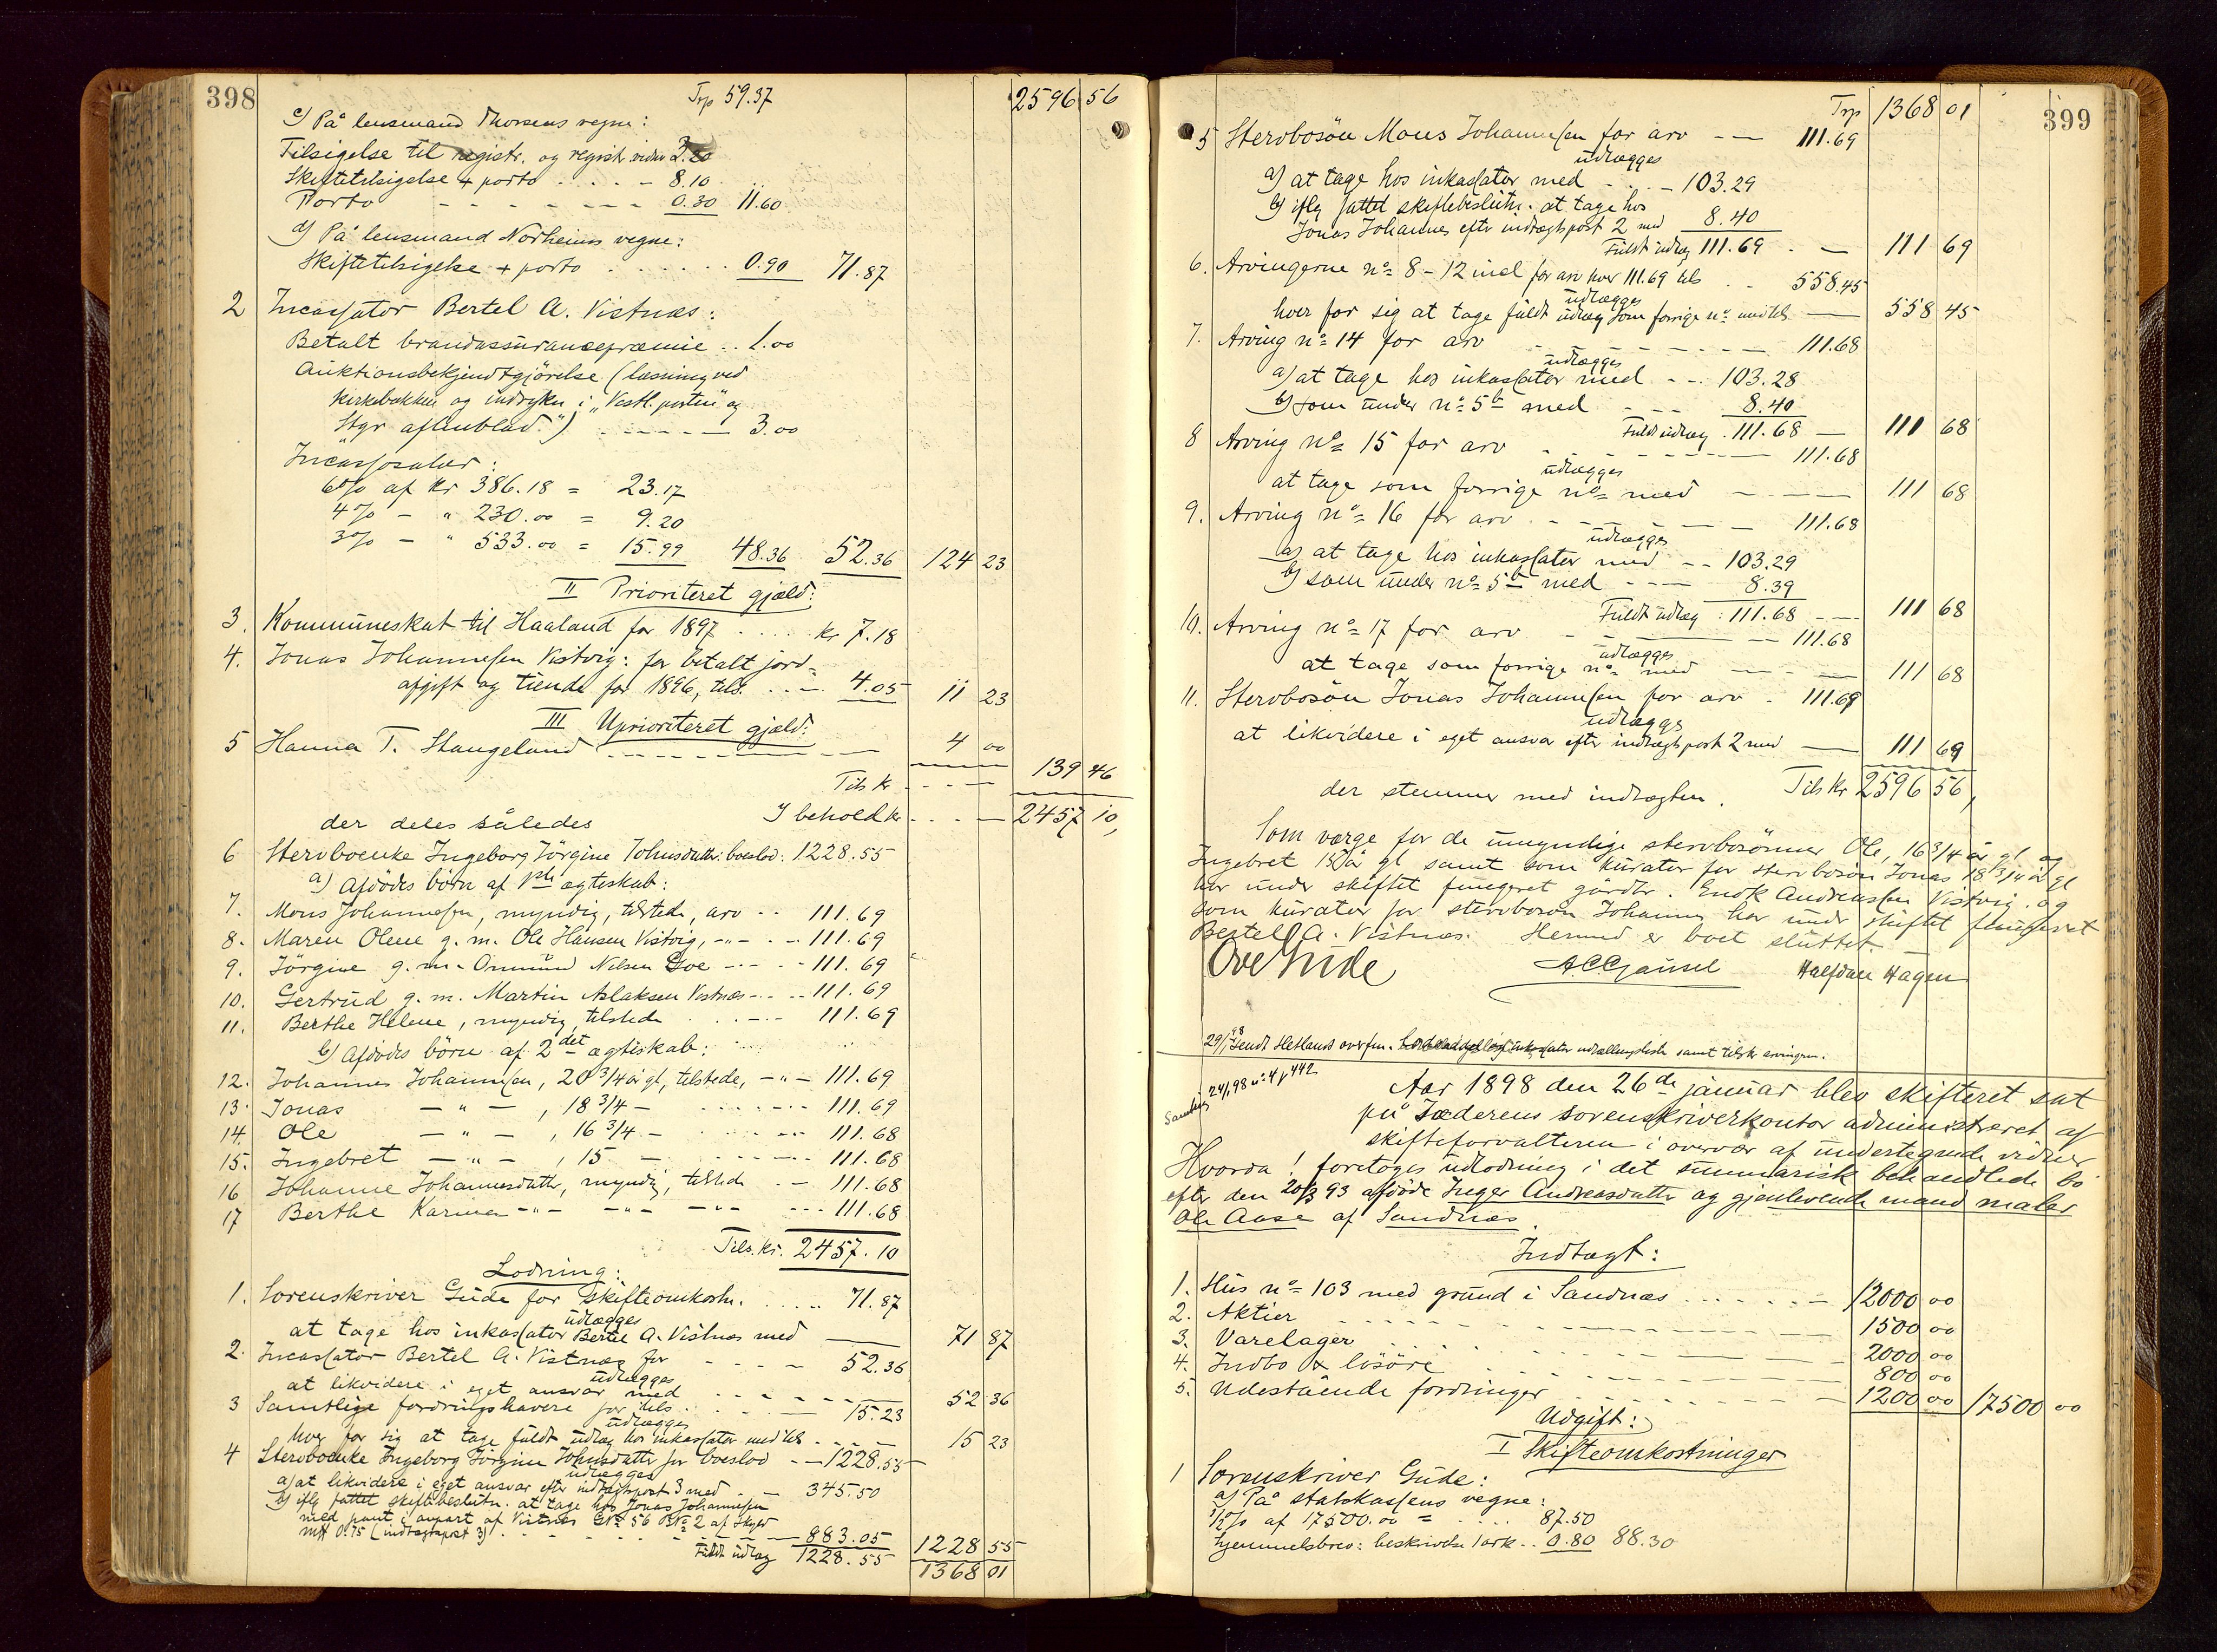 398
Trp 59.37 2596 56
c) På lensmand Thorsens vegne:
Tilsigelse til registr. og registr. vidner 3.20
Skiftetilsigelse + porto . . . . - 8.10
Porto - - - - - - - 0.30 11.60
d) På lensmand Norheims vegne:
Skiftetilsigelse + porto . . . . . . 0.90 71.87
2 Incassator Bertel A. Vistnæs:
Betalt brandassurancepræmie . . 1.00
Auktionsbekjendtgjörelse (læsning ved
kirkebakken og indrykn i „Vestl. posten" og
Stgr aftenblad.") - - - - - - 3.00
Incassosalær:
6% af kr 386.18 = 23.17
4% - " 230.00 = 9.20
3% - " 533.00 = 15.99 48.36 52.36 124 23
II Prioriteret gjæld:
3. Kommuneskat til Haaland for 1897 . . . . kr 7.18
4. Jonas Johannessen Vistvig: for betalt jord-
afgift og tiende for 1896, tils. . . - 4.05 11 23
III Uprioriteret gjæld:
5 Hanna T. Stangeland - - - - - - 4 00
Tils kr - - - - 139 46
I behold kr - - - - 2457 10,
der deles således
6 Stervboenke Ingeborg Jörgine Johnsdatter: boeslod: 1228.55
a) Afdödes börn af 1ste ægteskab:
7. Mons Johannessen, myndig, tilstede, arv - - 111.69
8. Maren Olene g. m. Ole Hansen Vistvig, -"- . - 111.69
9. Jörgine g. m. Ommund Nelsen Goe - - - - 111.69
10. Gertrud g. m. Martin Aslaksen Vistnæs - - - - 111.69
11. Berthe Helene, myndig, tilstede . . - - - 111.69
b) Afdödes börn af 2det ægteskab:
12. Johannes Johannessen, 20 3/4 år gl, tilstede, -"- 111.69
13. Jonas - " - , 18 3/4 - . . . . - - - 111.69
14. Ole - " - , 16 3/4 - . . . . - - - 111.68
15. Ingebret - " - , 15 - . . . . - - - 111.68
16 Johanne Johannesdatter, myndig, tilstede . - - 111.68
17 Berthe Karina -"- -"- -"- - - - 111.68
Tils. kr. 2457.10
Lodning:
1. Sorenskriver Gude for skifteomkostn. . . . . . 71.87
udlægges
at tage hos inkassator Bertel A. Vistnæs med —— 71 87
2. Incassator Bertel A. Vistnæs for - - - - - 52.36
udlægges
at likvidere i eget ansvar med - - - - - - - 52 36
3 Samtlige fordringshavere for tils . . . - — 15.23
udlægges
hver for sig at tage fuldt udlæg hos inkassator med tils - - - 15 23
4 Stervboenke Ingeborg Jörgine Johnsdatter for boeslod - - 1228.55
udlægges
a) at likvidere i eget ansvar efter indtægtspost 3 med . - - 345.50
b) iflg fattet skiftebeslutn. at tage hos Jonas Johannessen
med pant i anpart af Vistnæs GNo 56 BNo 2 af skyld
mk 0.75 (indtægtspost 3) . - - - - - - - 883.05
Fuldt udlæg 1228.55 1228 55
1368 01
399
Trp 1368 01
5 Stervbosön Mons Johannessen for arv - — 111.69
udlægges
a) at tage hos inkassator med - . . - 103.29
b) iflg fattet skiftebeslutn. at tage hos
Jonas Johannes efter indtægtspost 2 med 8.40
Fuldt udlæg 111.69 . — 111 69
6. Arvingerne no 8-12 incl for arv hver 111.69 tils . . 558.45
udlægges
hver for sig at tage fuldt udlæg som forrige no med tils — 558 45
7. Arving no 14 for arv - - - - - - - 111.68
udlægges
a) at tage hos inkassator med - - . 103.28
b) som under no 5b med - - - 8.40
Fuldt udlæg . 111.68 — 111 68
8 Arving no 15 for arv - - - - - - - 111.68
udlægges
at tage som forrige no med - - — - 111 68
9. Arving no 16 for arv . - - - - - - 111.68
udlægges
a) at tage hos inkassator med - - 103.29
b) som under no 5b med - - - 8.39
Fuldt udlæg : 111.68 - - - 111 68
10. Arving no 17 for arv - - - - - 111.68
udlægges
at tage som forrige no med — - — 111 68
11. Stervbosön Jonas Johannessen for arv . 111.69
udlægges
at likvidere i eget ansvar efter indtægtspost 2 med — 111 69
der stemmer med indtægten. Tils kr 2596 56,
Som værge for de umyndige stervbosönner Ole, 16 3/4 år gl og
Ingebret 15 år gl samt som kurator for stervbosön Jonas 18 3/4 år gl
har under skiftet fungeret gårdbr. Enok Andreassen Vistvig. og
som kurator for stervbosön Johannes har under skiftet fungeret
Bertel A. Vistnæs. Hermed er boet sluttet.
Ove Gude A.C. Gausel Halfdan Hagen
29/1 98 Sendt Hetlands overfm. inkassator udtællingsliste samt tilskr arvingerne.
24/1,98 no 4 p 442
Aar 1898 den 26de januar blev skifteret sat
på Jæderens sorenskriverkontor administreret af
skifteforvalteren i overvær af undertegnede vidner
Hvorda! foretoges udlodning i det summarisk behandlede bo
efter den 20/3 93 afdöde Inger Andreasdatter og gjenlevende mand maler
Ole Aase af Sandnæs.
Indtægt:
1. Hus no 103 med grund i Sandnæs . . . . . . - 12000 00
2. Aktier - - - - - - - - - - - 1500 00
3. Varelager . . . . . . - - — - 2000 00
4. Indbo & lösöre . - - - - - - - - 800 00
5. Udestående fordringer - - - - - - - 1200 00 17500 00
Udgift:
I Skifteomkostninger
1 Sorenskriver Gude:
a) På statskassens vegne:
1/2% af 17500.00 = . . . . 87.50
hjemmelsbrev: beskrivelse 1 ark . . 0.80 88.30